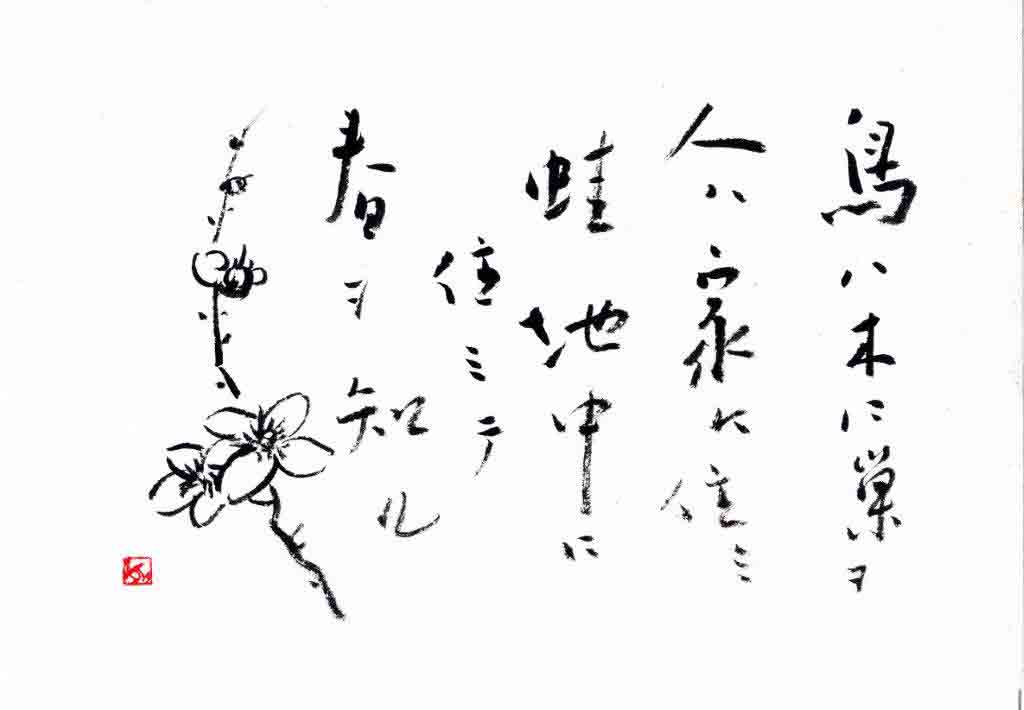 鳥ハ木ニ巣ヲ
人ハ家に住ミ
蛙地中に
住ミテ
春ヲ知ル